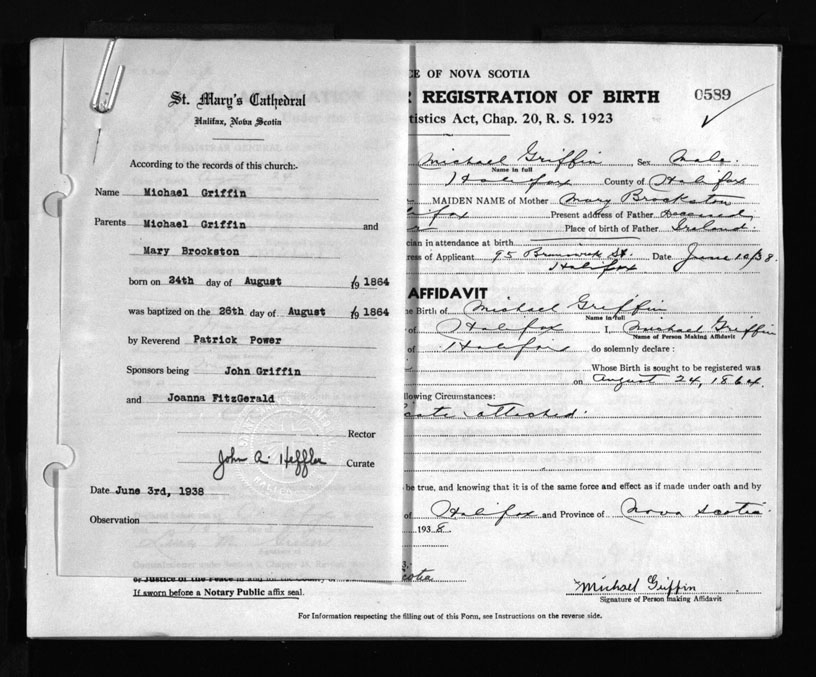 St. Mary's Cathedral
Halifax, Nova Scotia
According to the records of this church:-
Name Michael Griffin
Parents Michael Griffin and
Mary Brookston
born on 24th day of August 19 1864
was baptized on the 26th day of August 19 1864
by Reverend Patrick Power
Sponsors being John Griffin
and Joanna FitzGerald
Rector
John A. Heffler Curate
Date June 3rd, 1938
Observation
CE OF NOVA SCOTIA
REGISTRATION OF BIRTH 0589
tistics Act, Chap. 20, R. S. 1923
Michael Griffin Sex Male.
Name in full
Halifax County of Halifax
MAIDEN NAME of Mother Mary Brookston
lifax Present address of Father Deceased
Place of birth of Father Ireland.
cian in attendance at birth
ress of Applicant 95 Brunswick St. Date June 10/38.
Halifax
AFFIDAVIT
e Birth of Michael Griffin
Name in full
of Halifax I, Michael Griffin
Name of Person Making Affidavit
of Halifax do solemnly declare :
Whose Birth is sought to be registered was
on August 24, 1864.
llowing Circumstances:
cate attached.
be true, and knowing that it is of the same force and effect as if made under oath and by
of Halifax and Province of Nova Scotia
1938
Scotia
or Justice of the Peace in and for the County of
If sworn before a Notary Public affix seal.
Michael Griffin
Signature of Person Making Affidavit
For Information respecting the filling out of this Form, see Instructions on the reverse side.